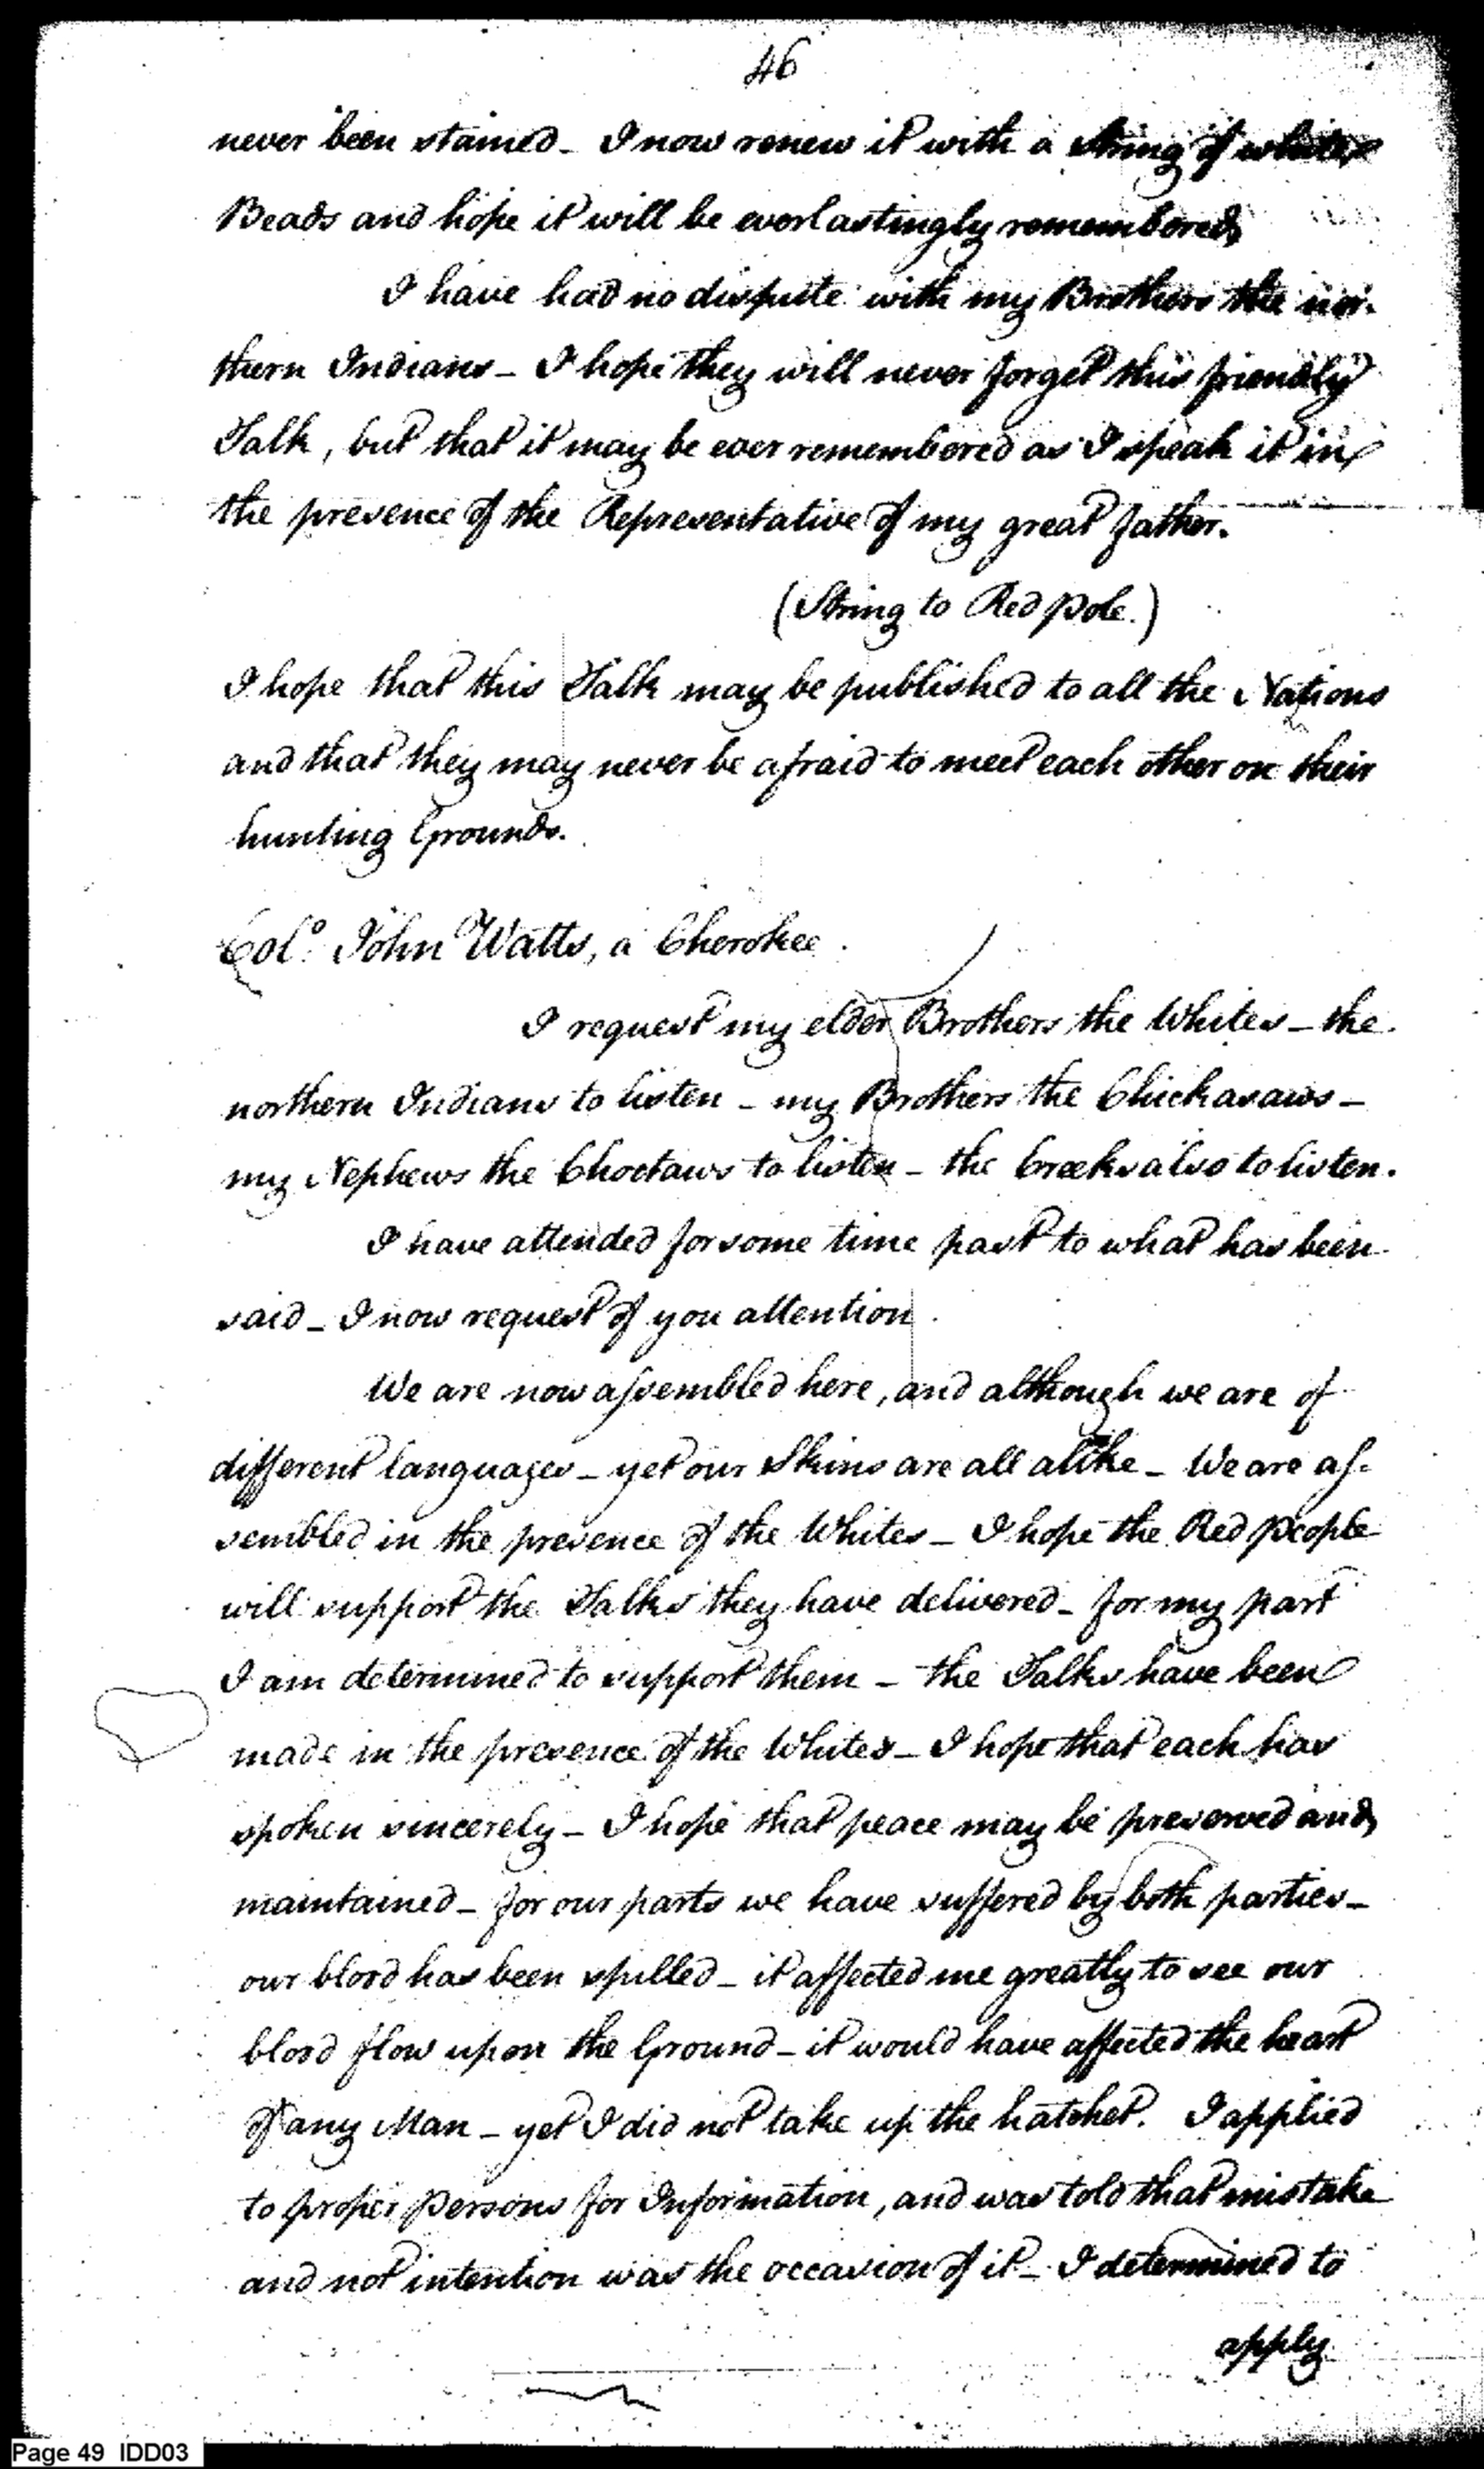 46
never been stained - I now renew it with a string of white
Beads and hope it will be everlastingly remembered
I have had no dispute with my Brothers the nor-
thern Indians - I hope they will never forget this friendly
Talk, but that it may be ever remembered as I speak it in
the presence of the Representative of my great father.
(String to Red pole.)
I hope that this Talk may be published to all the Nations
and that they may never be afraid to meet each other on their
hunting Grounds.
Colo. John Watts, a Cherokee.
I request my elder Brothers the Whites - the
northern Indians to listen - my Brothers the Chickasaws -
my Nephews the Choctaws to listen - the Creeks also to listen.
I have attended for some time past to what has been
said - I now request of you attention.
We are now assembled here, and although we are of
different languages - yet our Skins are all alike - We are as-
sembled in the presence of the Whites - I hope the Red people
will support the Talks they have delivered - for my part
I am determined to support them - the Talks have been
made in the presence of the Whites - I hope that each has
spoken sincerely - I hope that peace may be preserved and
maintained - for our parts we have suffered by both parties -
our blood has been spilled - it affected me greatly to see our
blood flow upon the Ground - it would have affected the heart
of any Man - yet I did not take up the hatchet. I applied
to proper persons for Information, and was told that mistake
and not intention was the occasion of it - I determined to
apply
Page 49 IDD03